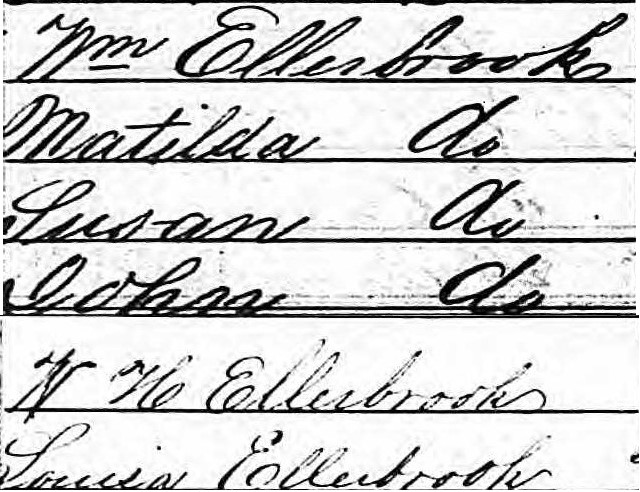 Wm Ellerbrook
Matilda do
Susan do
John do
W H Ellerbrook
Louisa Ellerbrook